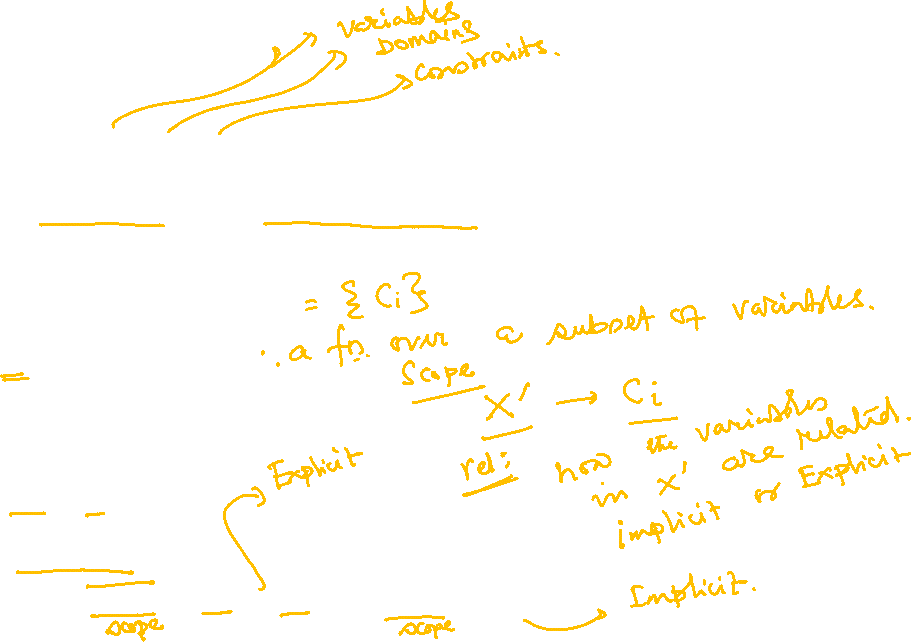 variables
Domains
Constraints.
= {Ci}
∴ a fn. over a subset of variables.
Scope
X' → Ci
rel: how the variables
in X' are related.
implicit or Explicit
Explicit
Implicit.
scope
scope